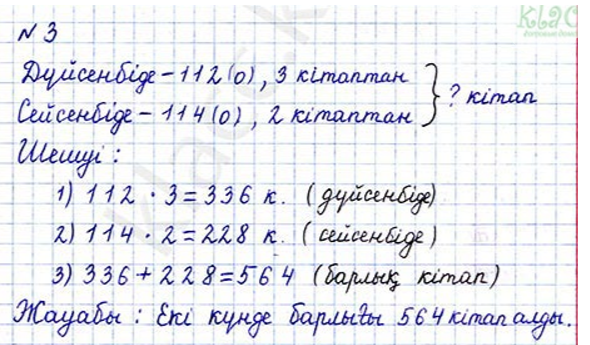 klac
№ 3
Дүйсенбіде – 112 (о), 3 кітаптан
Сейсенбіде – 114 (о), 2 кітаптан
? кітап
Шешуі :
1) 112 · 3 = 336 к. (дүйсенбіде)
2) 114 · 2 = 228 к. (сейсенбіде)
3) 336 + 228 = 564 (барлық кітап)
Жауабы : Екі күнде барлығы 564 кітап алды.